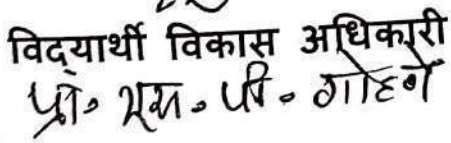 विद्यार्थी विकास अधिकारी
प्रा. एस. पी. गोहणे